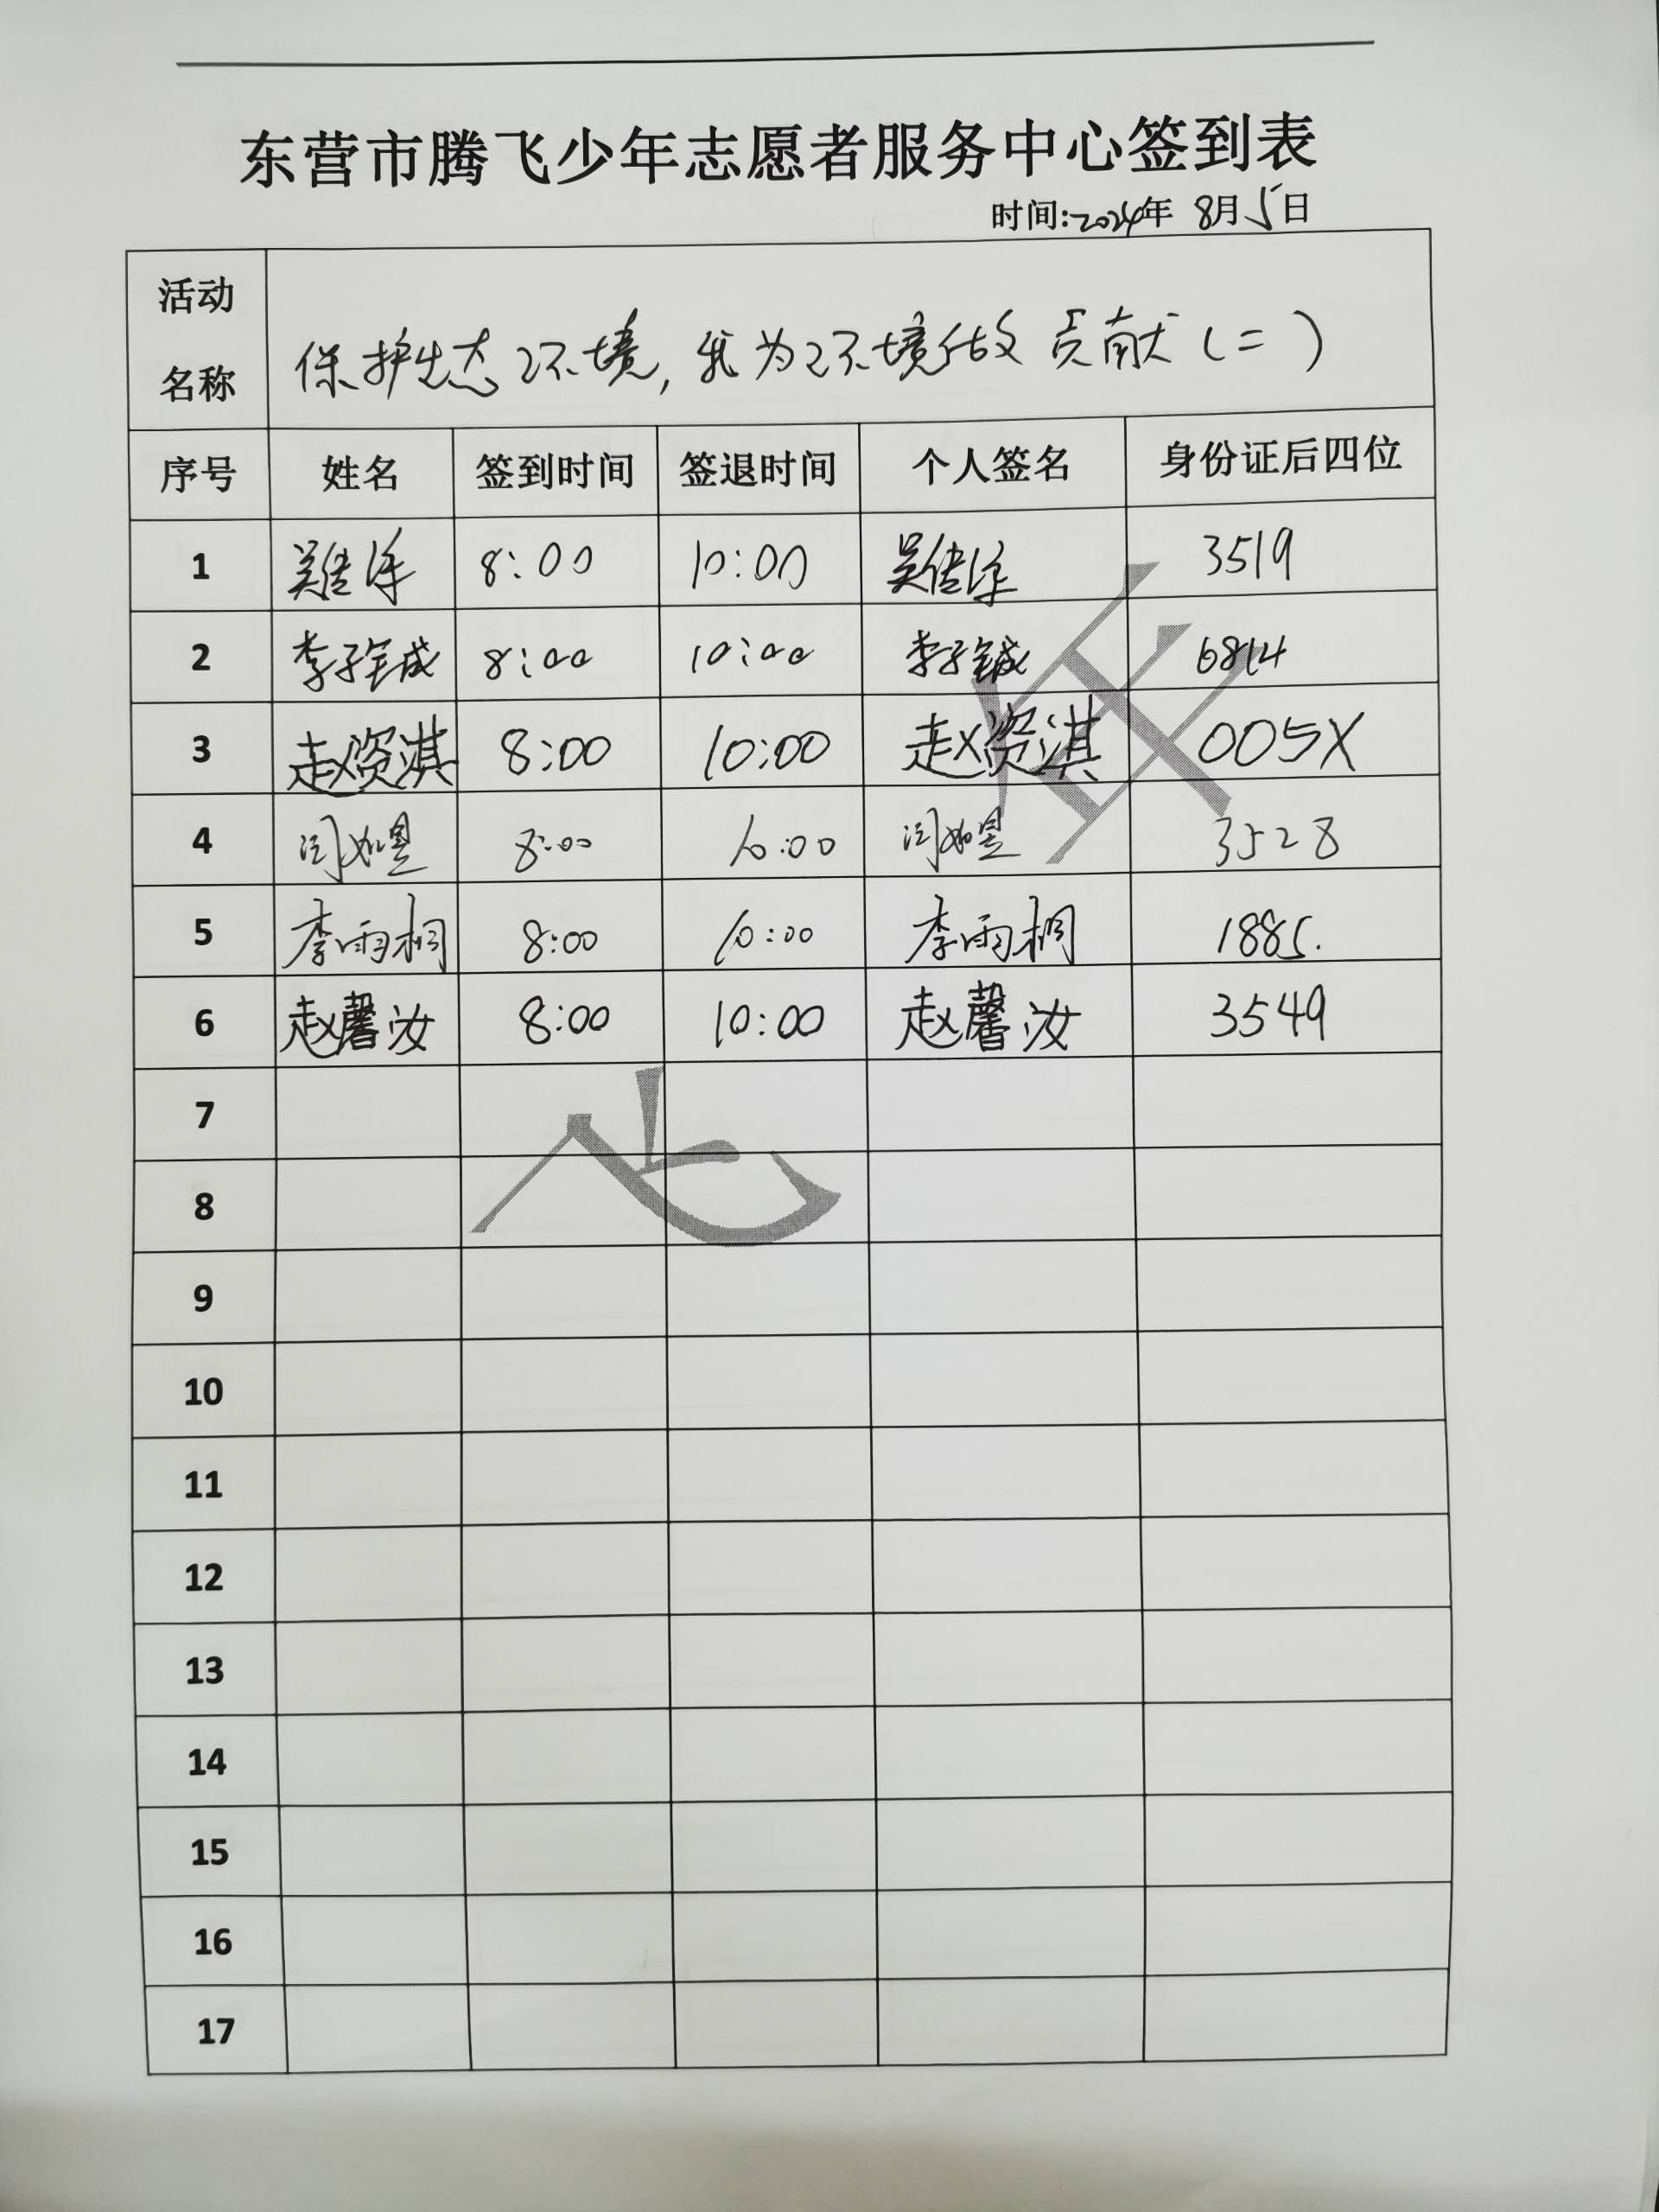 东营市腾飞少年志愿者服务中心签到表
时间:2024年 8月5日
活动名称 保护生态环境,我为环境做贡献(二)
序号 姓名 签到时间 签退时间 个人签名 身份证后四位
1 吴佳泽 8:00 10:00 吴佳泽 3519
2 李子铖 8:00 10:00 李子铖 6814
3 赵资淇 8:00 10:00 赵资淇 005X
4 闫如昱 8:00 10:00 闫如昱 3528
5 李雨桐 8:00 10:00 李雨桐 1885.
6 赵馨汝 8:00 10:00 赵馨汝 3549
7
8
9
10
11
12
13
14
15
16
17